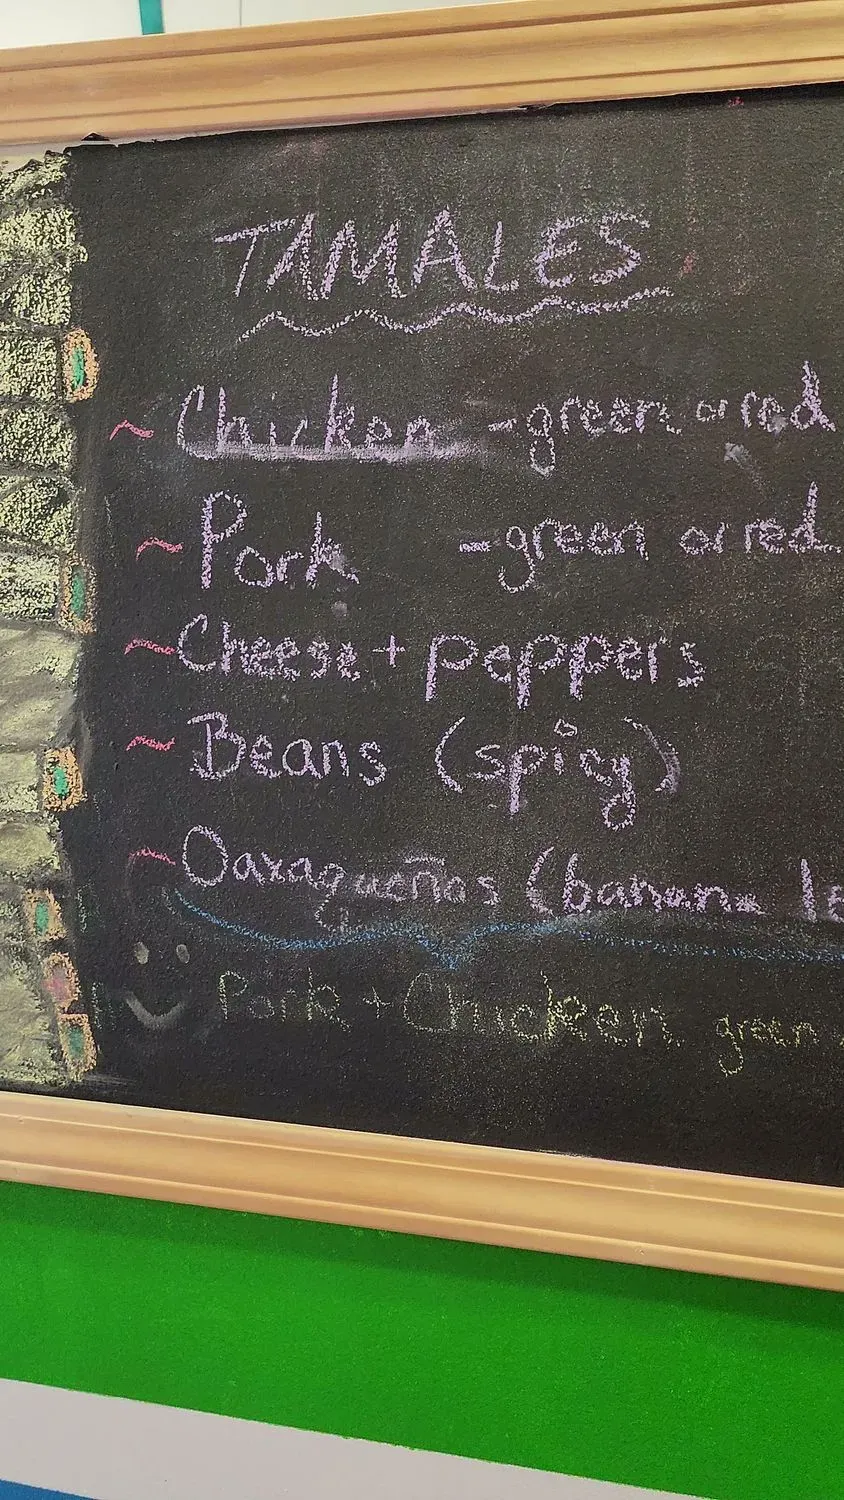 TAMALES
~ Chicken - green or red
~ Pork - green or red
~ Cheese + peppers
~ Beans (spicy)
~ Oaxaqueños (banana
Pork + Chicken green